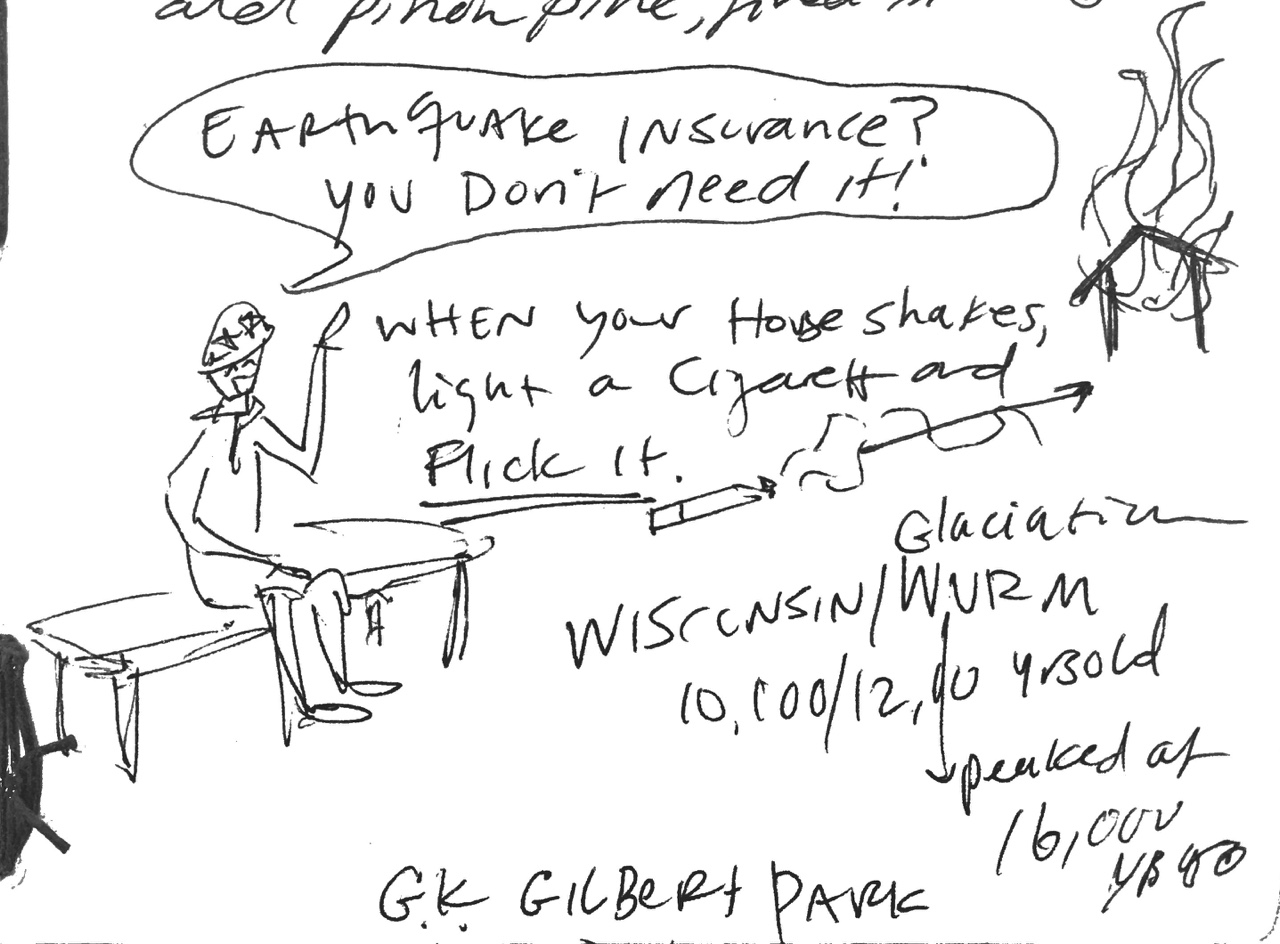 and pinon pine,
EARthquAke INSurance?
you Don't need it!
WHEN your House shakes,
light a Cigarett and
Flick It.
Glaciation
WISCONSIN/WURM
10,000/12,000 yrs old
peaked at
16,000
G.K. GILBERt PARK